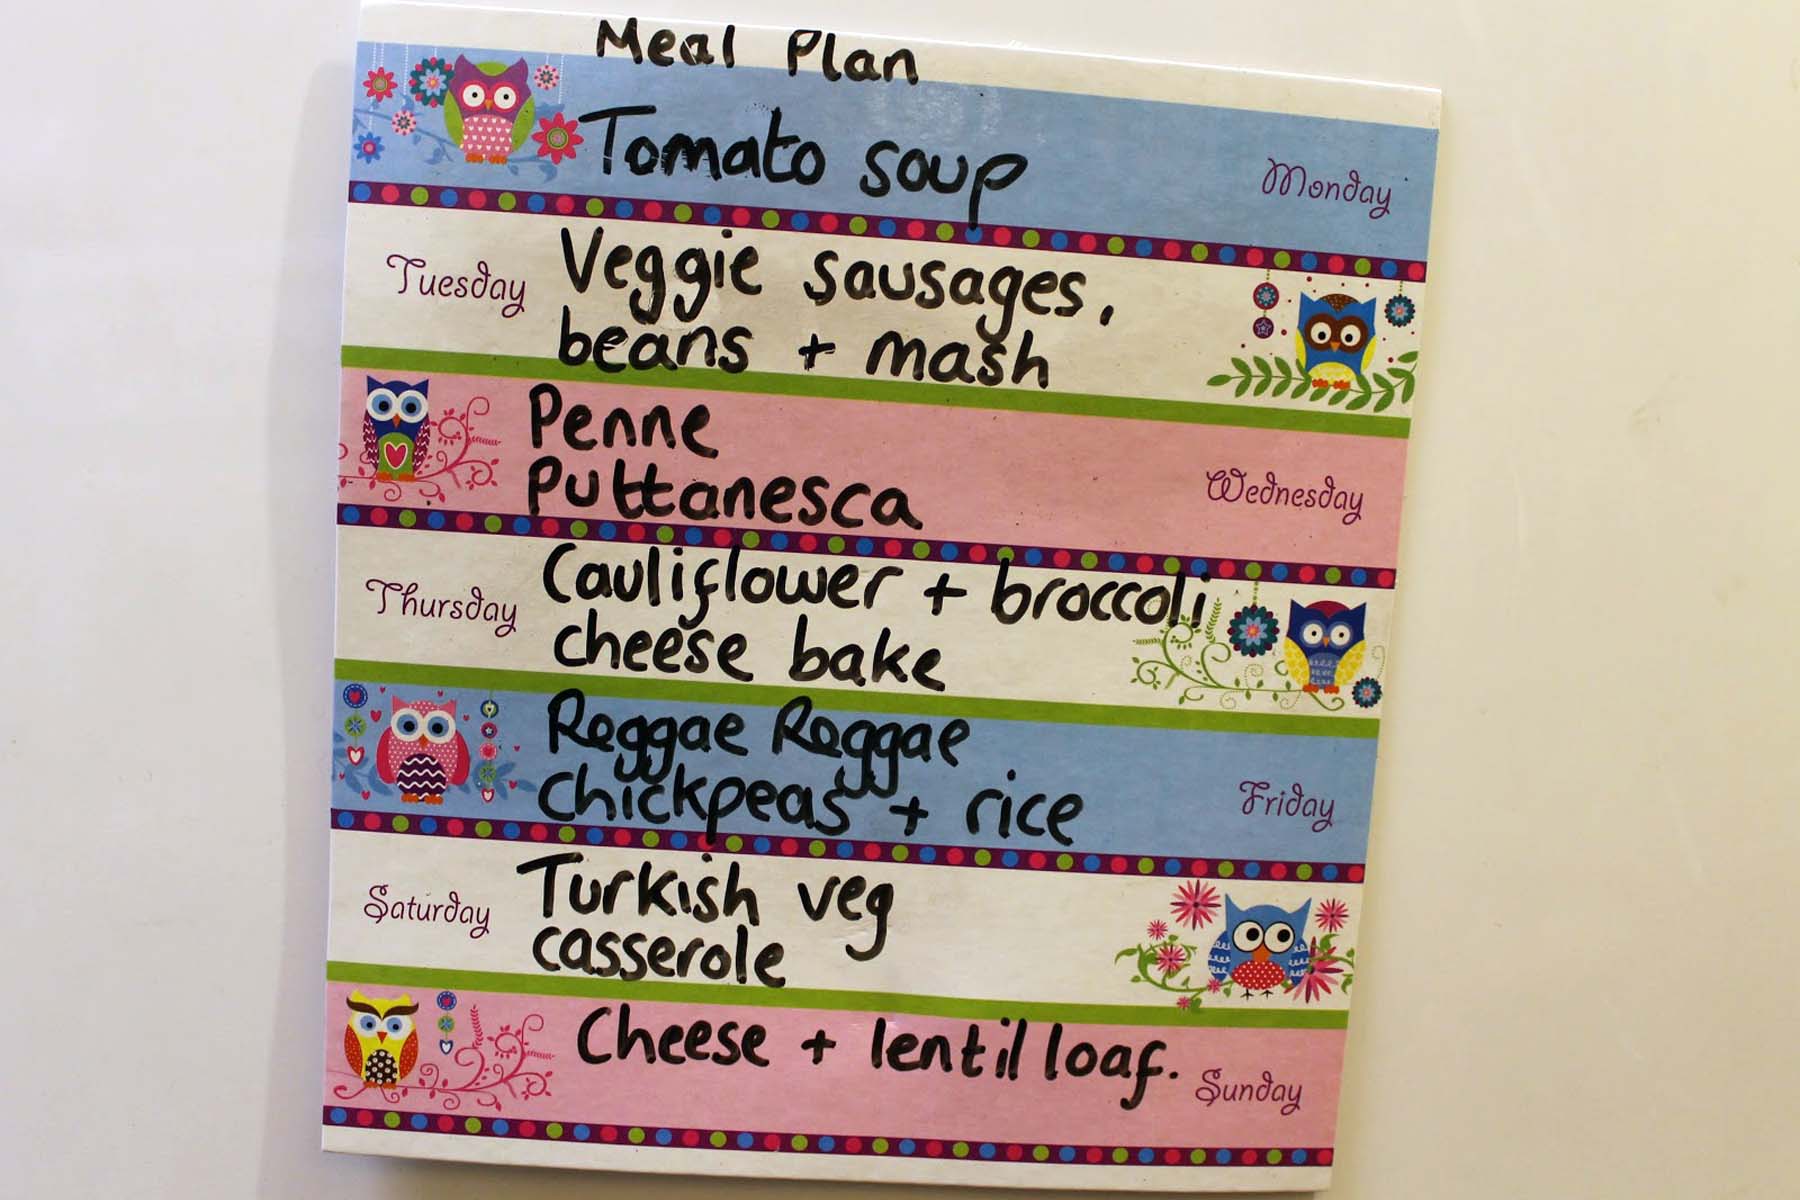 Meal Plan
Tomato soup
Monday
Tuesday
Veggie sausages,
beans + mash
Penne
Puttanesca
Wednesday
Thursday
Cauliflower + broccoli
cheese bake
Reggae Reggae
chickpeas + rice
Friday
Saturday
Turkish veg
casserole
Cheese + lentil loaf.
Sunday